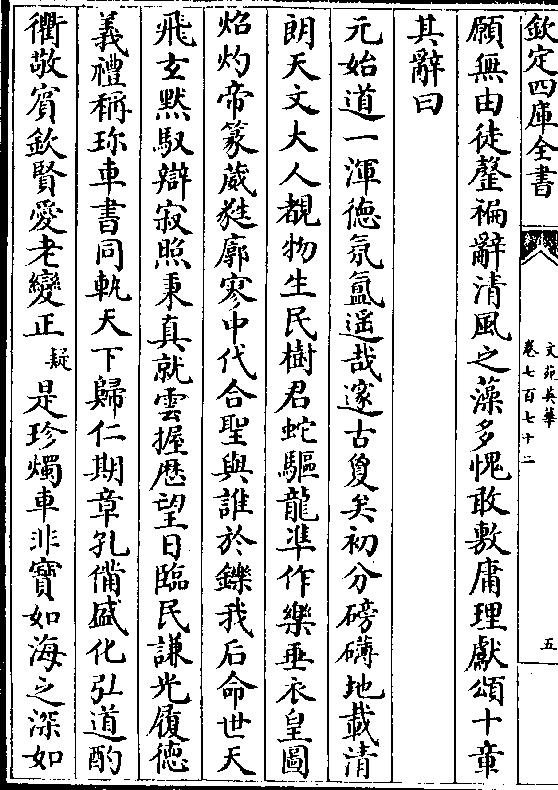 欽定四庫全書
文苑英華
卷七百七十二
五
願無由徒罄褊辭清風之藻多愧敢敷庸理獻頌十章
其辭曰
元始道一渾德氛氳遥哉邃古敻矣初分磅礴地載清
朗天文大人覩物生民樹君蛇驅龍凖作樂垂衣皇圖
焰灼帝篆葳蕤廓寥中代合聖與誰於鑠我后命世天
飛玄黙馭辯寂照秉真就雲握厯望日臨民謙光履德
義禮稱珎車書同軌天下歸仁期章孔備盛化弘道酌
衢敬賓欽賢愛老變正疑是珍燭車非寳如海之深如